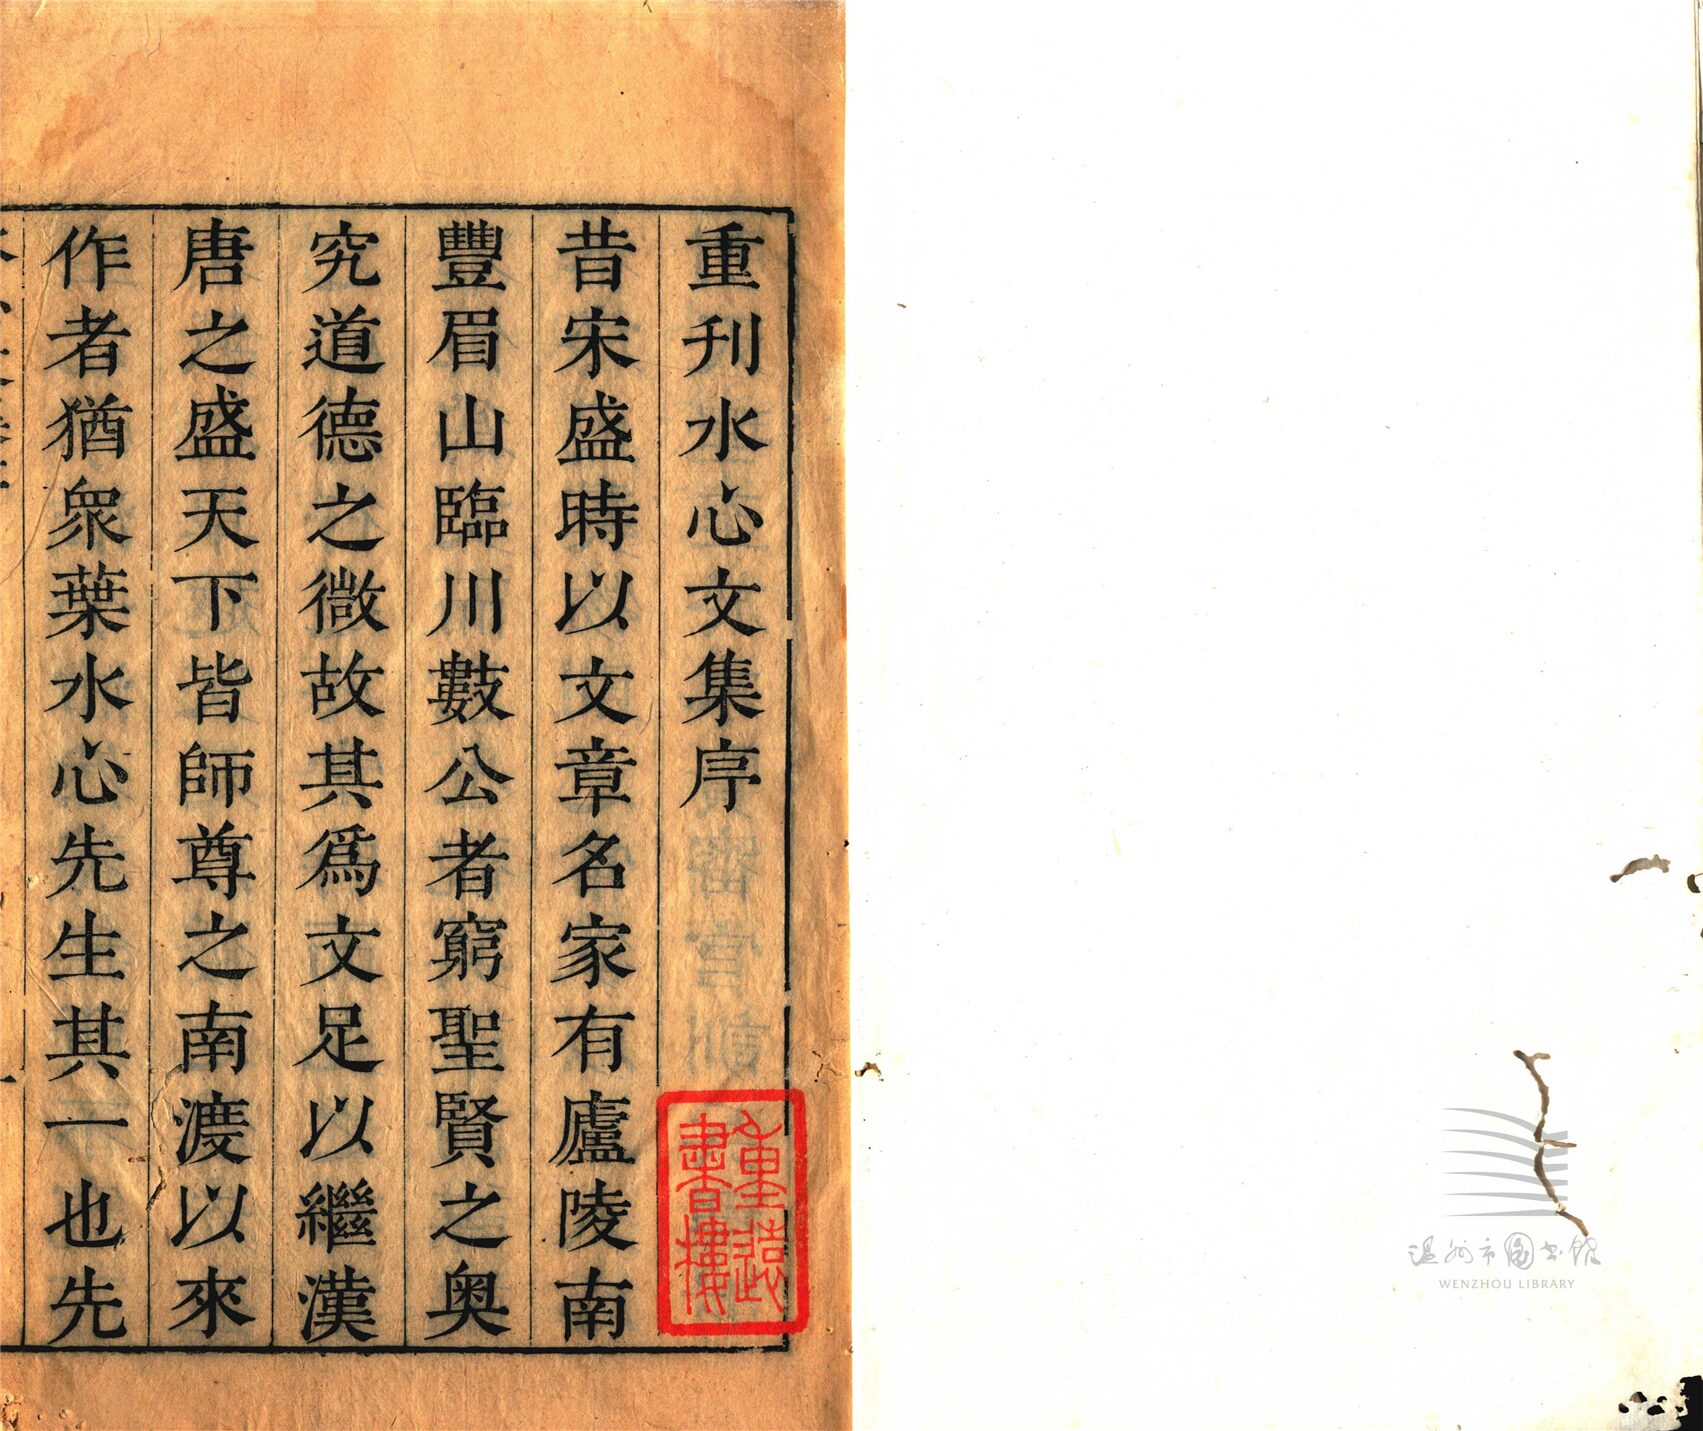 重刋水心文集序
昔宋盛時以文章名家有廬陵南
豐眉山臨川數公者窮聖賢之奥
究道德之微故其爲文足以繼漢
唐之盛天下皆師尊之南渡以來
作者猶衆葉水心先生其一也先
重遠
書樓
温州市图书馆
WENZHOU LIBRARY